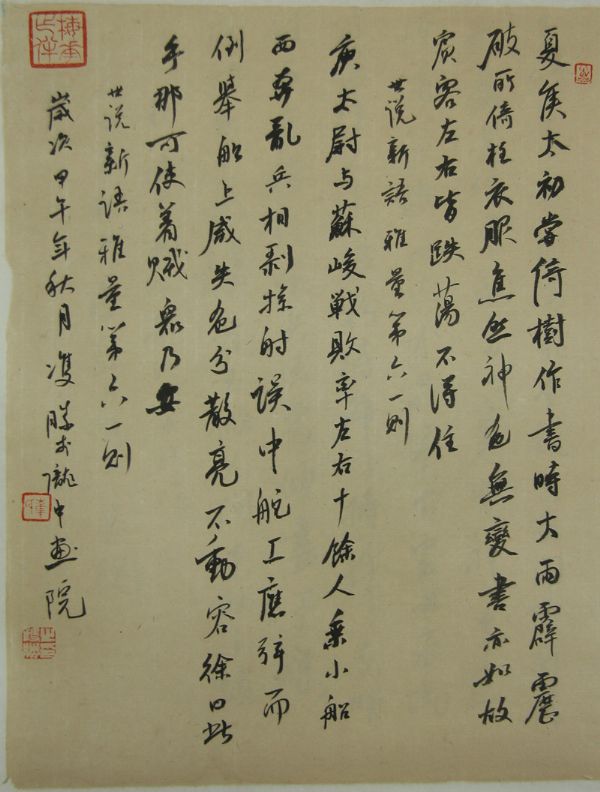 夏侯太初嘗倚樹作書時大雨霹靂
破所倚柱衣服焦然神色無變書亦如故
賓客左右皆跌蕩不得住
世说新語雅量第六一则
庾太尉与蘇峻戰敗率左右十餘人乗小船
西奔亂兵相剥掠射误中舵工應弦而
倒舉船上咸失色分散亮不動容徐曰此
手那可使着贼衆乃安
世说新语雅量第六一则
歲次甲午年秋月 勝书 中画院